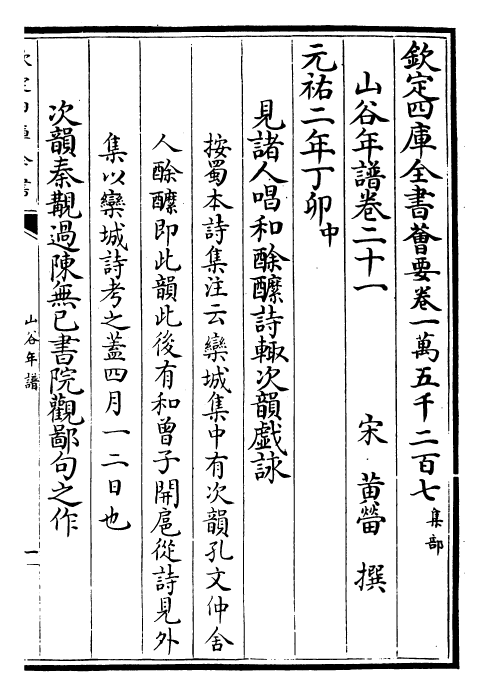 欽定四庫全書薈要卷一萬五千二百七 集部
山谷年譜卷二十一
宋 黃㽦 撰
元祐二年丁卯中
見諸人唱和酴醿詩輙次韻戲詠
按蜀本詩集注云欒城集中有次韻孔文仲舍
人酴醿即此韻此後有和曾子開扈從詩見外
集以欒城詩考之蓋四月一二日也
次韻秦觀過陳無已書院觀鄙句之作
欽定四庫全書
山谷年譜
一